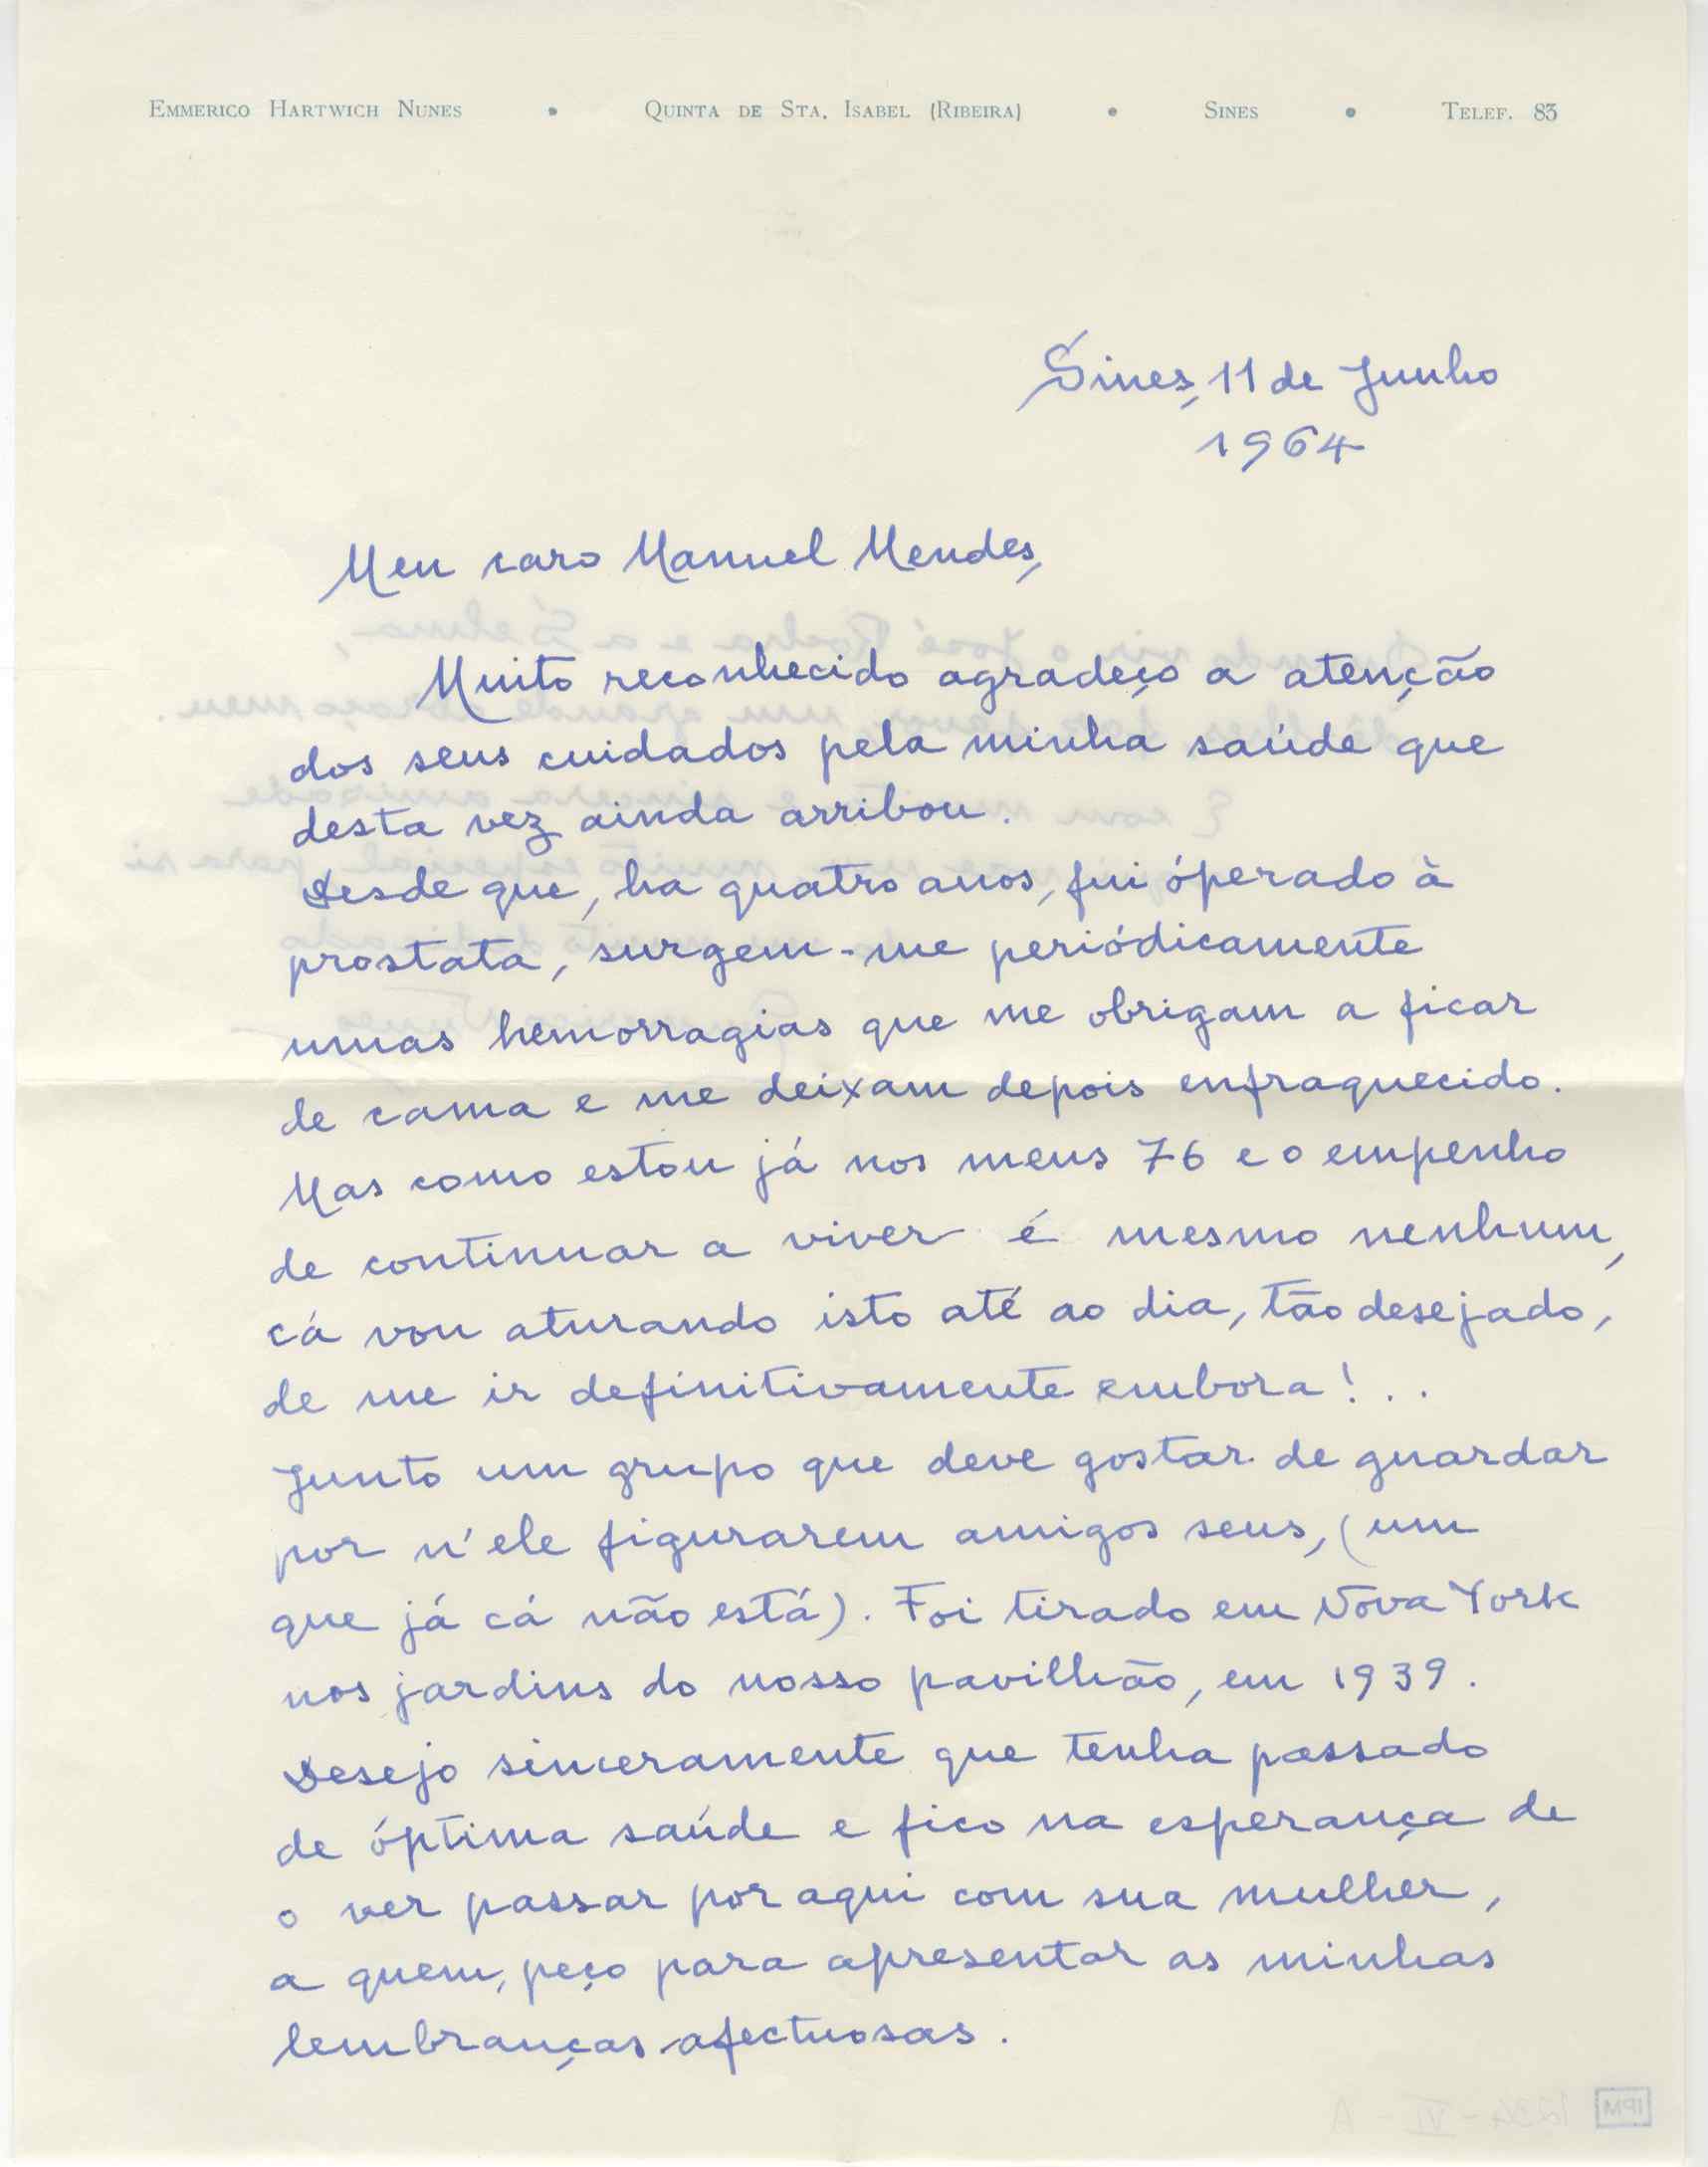 EMMERICO HARTWICH NUNES • QUINTA DE STA. ISABEL (RIBEIRA) • SINES • TELEF. 83
Sines, 11 de Junho
1964
Meu caro Manuel Mendes,
Muito reconhecido agradeço a atenção
dos seus cuidados pela minha saúde que
desta vez ainda arribou.
Desde que, ha quatro anos, fui óperado à
prostata, surgem-me periódicamente
umas hemorragias que me obrigam a ficar
de cama e me deixam depois enfraquecido.
Mas como estou já nos meus 76 e o empenho
de continuar a viver é mesmo nenhum,
cá vou aturando isto até ao dia, tão desejado,
de me ir definitivamente embora!..
Junto um grupo que deve gostar de guardar
por n'ele figurarem amigos seus, (um
que já cá não está). Foi tirado em Nova York
nos jardins do nosso pavilhão, em 1939.
Desejo sinceramente que tenha passado
de óptima saúde e fico na esperança de
o ver passar por aqui com sua mulher,
a quem, peço para apresentar as minhas
lembranças afectuosas.
IPM